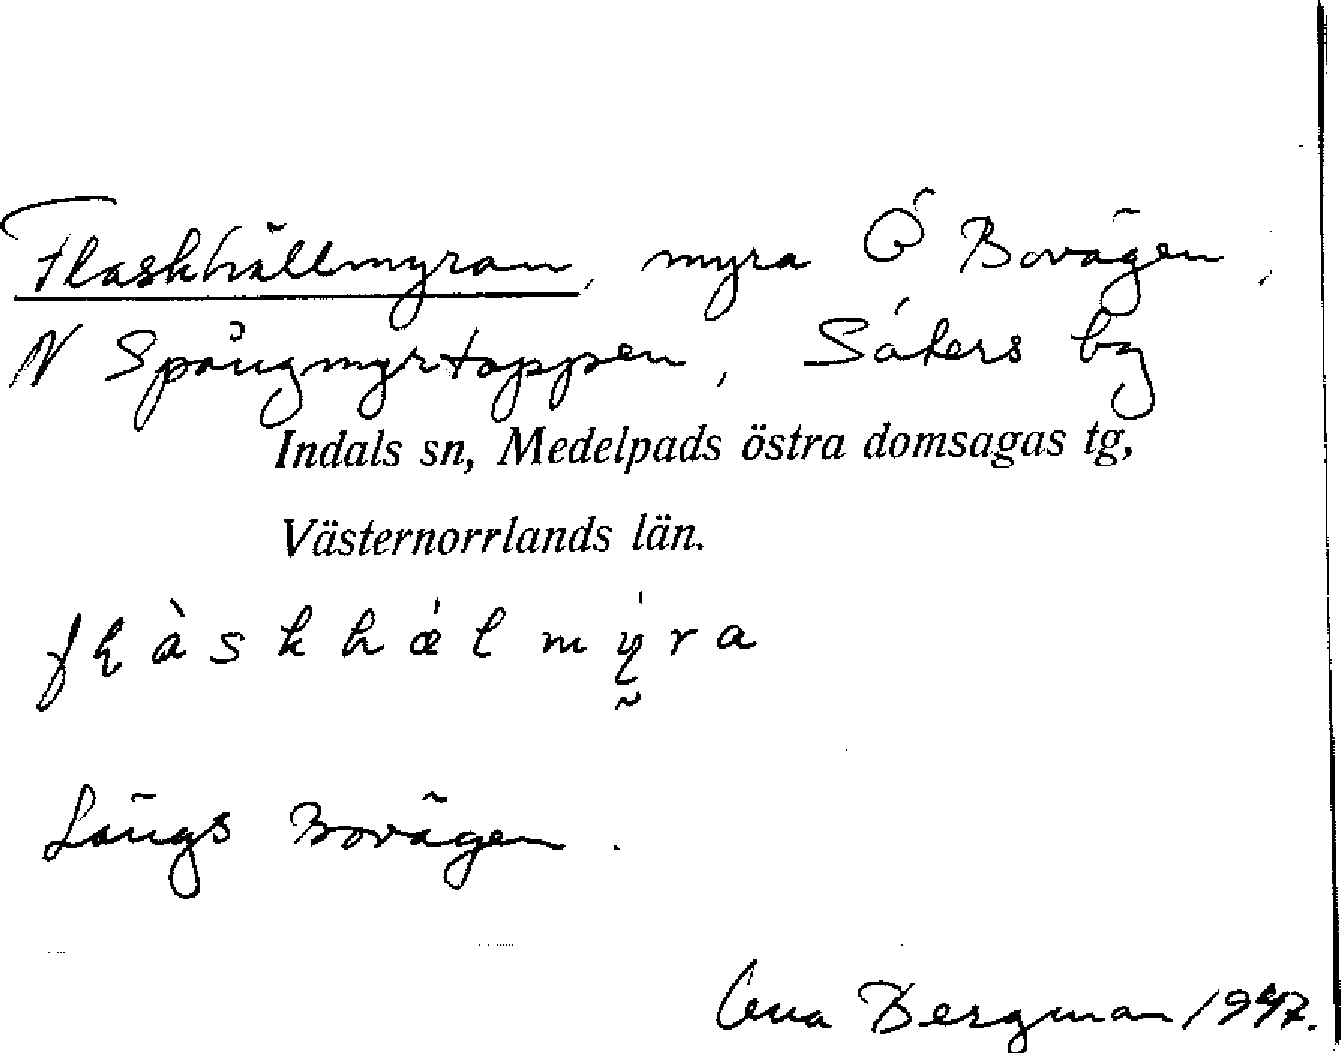 Flaskhällmyran, myra Ö Bovägen,
N Spångmyrtoppen, Såkers by
Indals sn, Medelpads östra domsagas tg,
Västernorrlands län.
Längs Bovägen.
Bergman 1947.